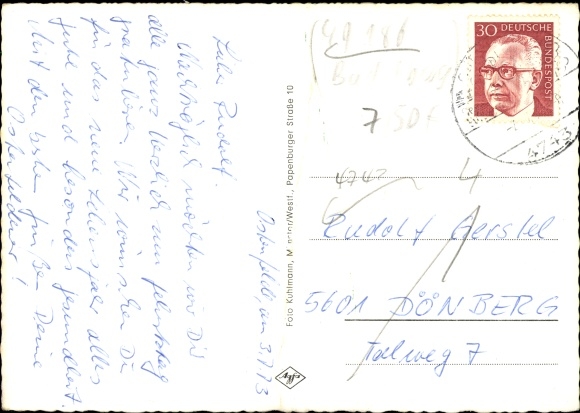 Ostenfelde, am 3.7.73
Lieber Rudolf.
Nachträglich möchten wir Dir
alle ganz herzlich zum Geburtstag
gratulieren. Wir wünschen Dir
für das neue Lebensjahr alles
Gute und besonders Gesundheit.
Mit den besten Grüßen Deine
Ostenfelder!
Foto Kuhlmann, Münster/Westf., Papenburger Straße 10
Agfa
30 DEUTSCHE
BUNDESPOST
4743
49 186
7 50
4743
4
Rudolf Gerstel
5601 DÖNBERG
Talweg 7